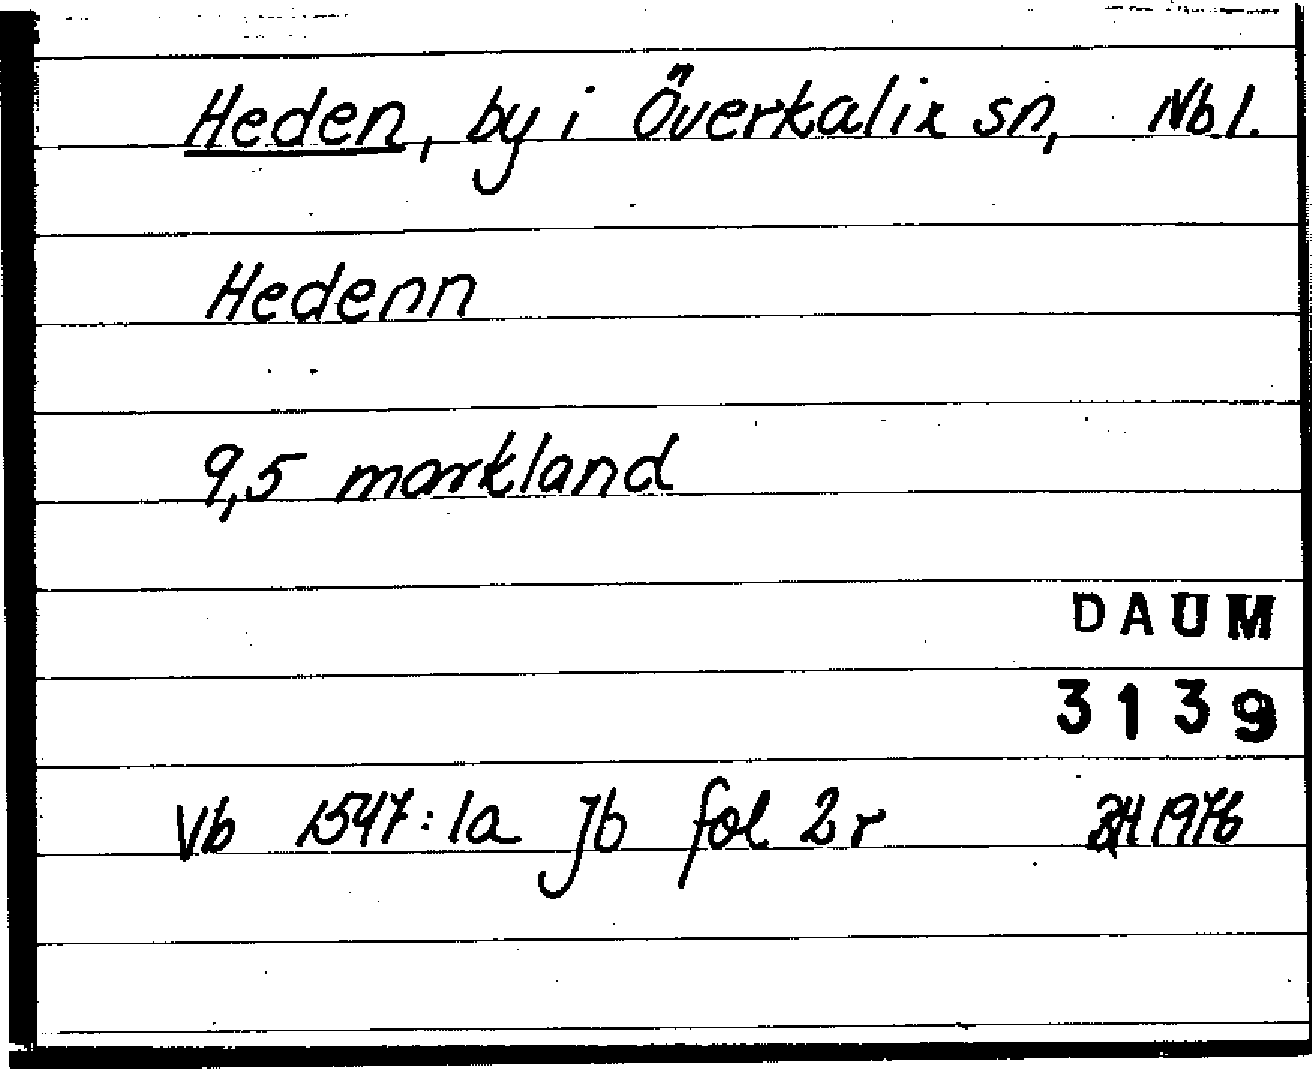 Heden, by i Överkalix sn, Nbl.
Hedenn
9,5 markland
DAUM
3139
Vb 1547:1a Jb fol 2r 1976